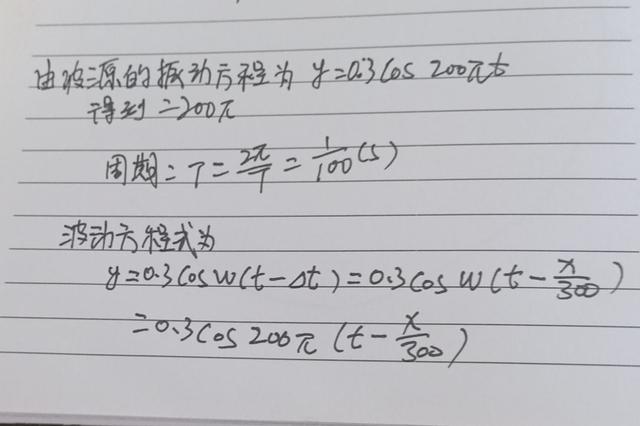 由波源的振动方程为 y=0.3cos 200πt
得到 =200π
周期: T=2π/T=1/100(s)
波动方程式为
y=0.3cosw(t-Δt)=0.3cosw(t-x/300)
=0.3cos200π(t-x/300)